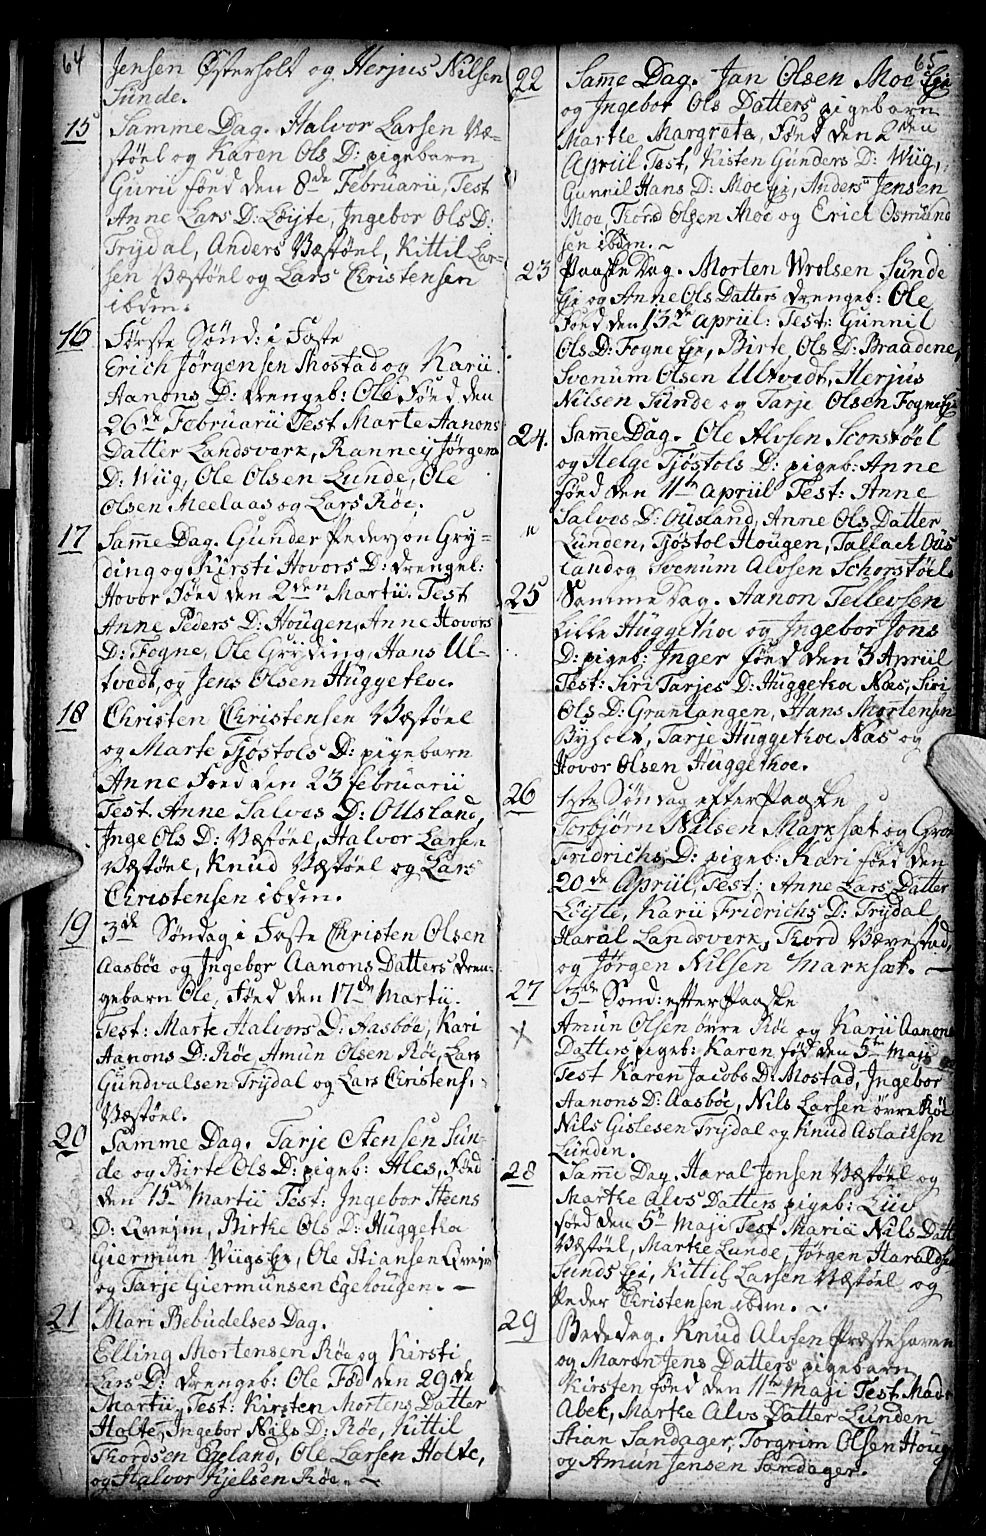 64
Jensen Østerholt og Herjus Nilsen
Sunde.
15
Samme Dag. Halvor Larsen Væ-
støel og Karen Ols D: pigebarn
Guru fönd den 8de Februarii, Test
Anne Lars D: Løyte, Ingebor Ols D:
Trydal, Anders Væstøel, Kittil Lar-
sen Væstøel og Lars Christensen
ibdm.
16
Første Sönd: i Faste
Erich Jörgensen Mostad og Karii
Aanons D: drengeb: Ole Fönd den
26de Februarii Test Marte Aanons
Datter Landsverk, Ranney Jörgens
D: Wiig, Ole Olsen Lunde, Ole
Olsen Meelaas og Lars Röe.
17
Samme Dag. Gunder Pederson Gry-
ding og Kirsti Hovors D: drengel:
Hovor Fönd den 2den Martii. Test
Anne Peders D: Hougen, Anne Hovors
D: Fogne, Ole Gryding, Hans Ul-
tvedt, og Jens Olsen Huggethoe.
18
Christen Christensen Væstöel
og Marte Tjöstols D: pigebarn
Anne Fönd den 23 februarii
Test. Anne Salves D: Ousland,
Inge Ols D: Væstöel, Halvor Larsen
Væstöel, Knud Væstöel og Lars
Christensen ibdm.
19
3de Søndag i Faste Christen Olsen
Aasböe og Ingebor Aanons Datters dren-
gebarn Ole, Fönd den 17de Martii.
Test: Marte Halvors D: Aasböe, Kari
Aanons D: Röe, Amun Olsen Röe, Lars
Gundvalsen Trydal og Lars Christens,
Væstöel.
20
Samme Dag. Tarje Stensen Sun-
de og Birte Ols D: pigeb: Ales, Fönd
den 15de Martii Test: Ingebor Steens
D: Qvejm, Birthe Ols D: Huggethoe
Giermun Wiigs Eje, Ole Stiansen Qvejm
og Tarje Giermunsen Egehougen. —
21
Mari Bebudelses Dag.
Elling Mortensen Röe og Kirsti
Lars D: drengeb: Ole Föd den 29de
Martii, Test: Kirsten Mortens Datter
Holte, Ingebor Nils D: Röe, Kittil
Thordsen Egeland, Ole Larsen Holte,
og Halvor Kjelsen Röe.
65
22
Same Dag. Jan Olsen Moe Eje
og Ingebor Ols Datters pigebarn
Marthe Margreta, Fönd den 2den
Apriil Test, Kisten Gunders D: Wiig,
Gunnil Hans D: Moe Eje, Anders Jensen
Moe, Thord Olsen Moe og Erich Osmund
sen ibdm.
23
Paaske Dag. Morten Wrolsen Sunde
Eje og Anne Ols Datters drengeb: Ole
Fönd den 13de Apriil: Test: Gunnil
Ols D: Fogne Eje, Birte Ols D: Braadene,
Svenum Olsen Ultvedt, Herjus
Nilsen Sunde og Tarje Olsen Fogne Eje
24.
Samme Dag. Ole Alvsen Sconstöel
og Helge Tjöstols D: pigeb: Anne
fönd den 11te Apriil Test: Anne
Salves D: Ousland, Anne Ols Datter
Lunden, Tjöstol Hougen, Tallach Ous
land og Svenum Alvsen Schorstöel.
25
Samme Dag. Aanon Tellevsen
Lille Huggethoe og Ingebor Jons
D: pigeb: Inger fönd den 3 Apriil
Test: Siri Tarjes D: Huggethoe Næs, Siri
Ols D: Grunlangen, Hans Mortensen
Byholt, Tarje Huggethoe Næs og
Hovor Olsen Huggethoe.
26
1ste Søndag efter Paaske
Torbjörn Nilsen Marksæt og Groe
Fridrichs D: pigeb: Kari fönd den
20de Apriil, Test: Anne Lars Datter
Löyte, Karii Fridrichs D: Trydal,
Haral Landsverk, Thord Væverstad,
og Jörgen Nilsen Marksæt. —
27
3de Sönd: efter Paaske
Amun Olsen övre Röe og Karii Aanons
Datters pigeb: Karen föd den 5te Maji
Test Karen Jacobs D: Mostad, Ingebor
Aanons D: Aasböe, Nils Larsen övre Röe
Nils Gislesen Trydal og Knud Aslacksen
Lunden.
28
Samme Dag. Haral Jonsen Væstöel og
Marthe Alvs Datters pigeb: Liv
fönd den 5te Maji Test Maria Nils Datter
Væstöel, Marthe Lunde, Jörgen Haraldsen
Sunds Eje, Kittil Larsen Væstöel og
Peder Christensen ibdm.
29
Bededag. Knud Alvsen Præstehaven
og Maren Jens Datters pigebarn
Kirsten fönd den 11te Maji Test Madr
Abel, Marthe Alvs Datter Lunden
Stian Sandager, Torgrim Olsen Houg
og Amun Jensen Sandager.